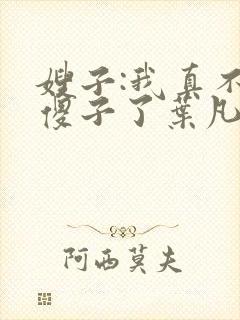 嫂子:我真不
傻子了葉凡
阿西莫夫